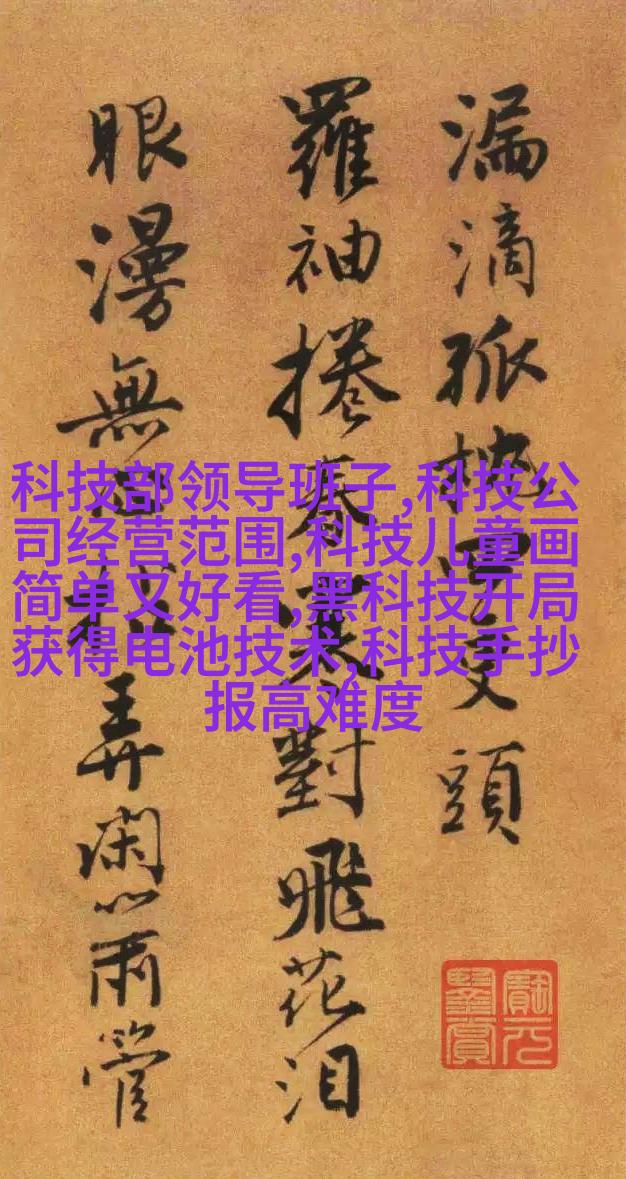 漏滴孤更頭
羅袖捲春寒對飛花泪
眼漫無弄閑管
科技部领导班子,科技公
司经营范围,科技儿童画
简单又好看,黑科技开局
获得电池技术,科技手抄
报高难度